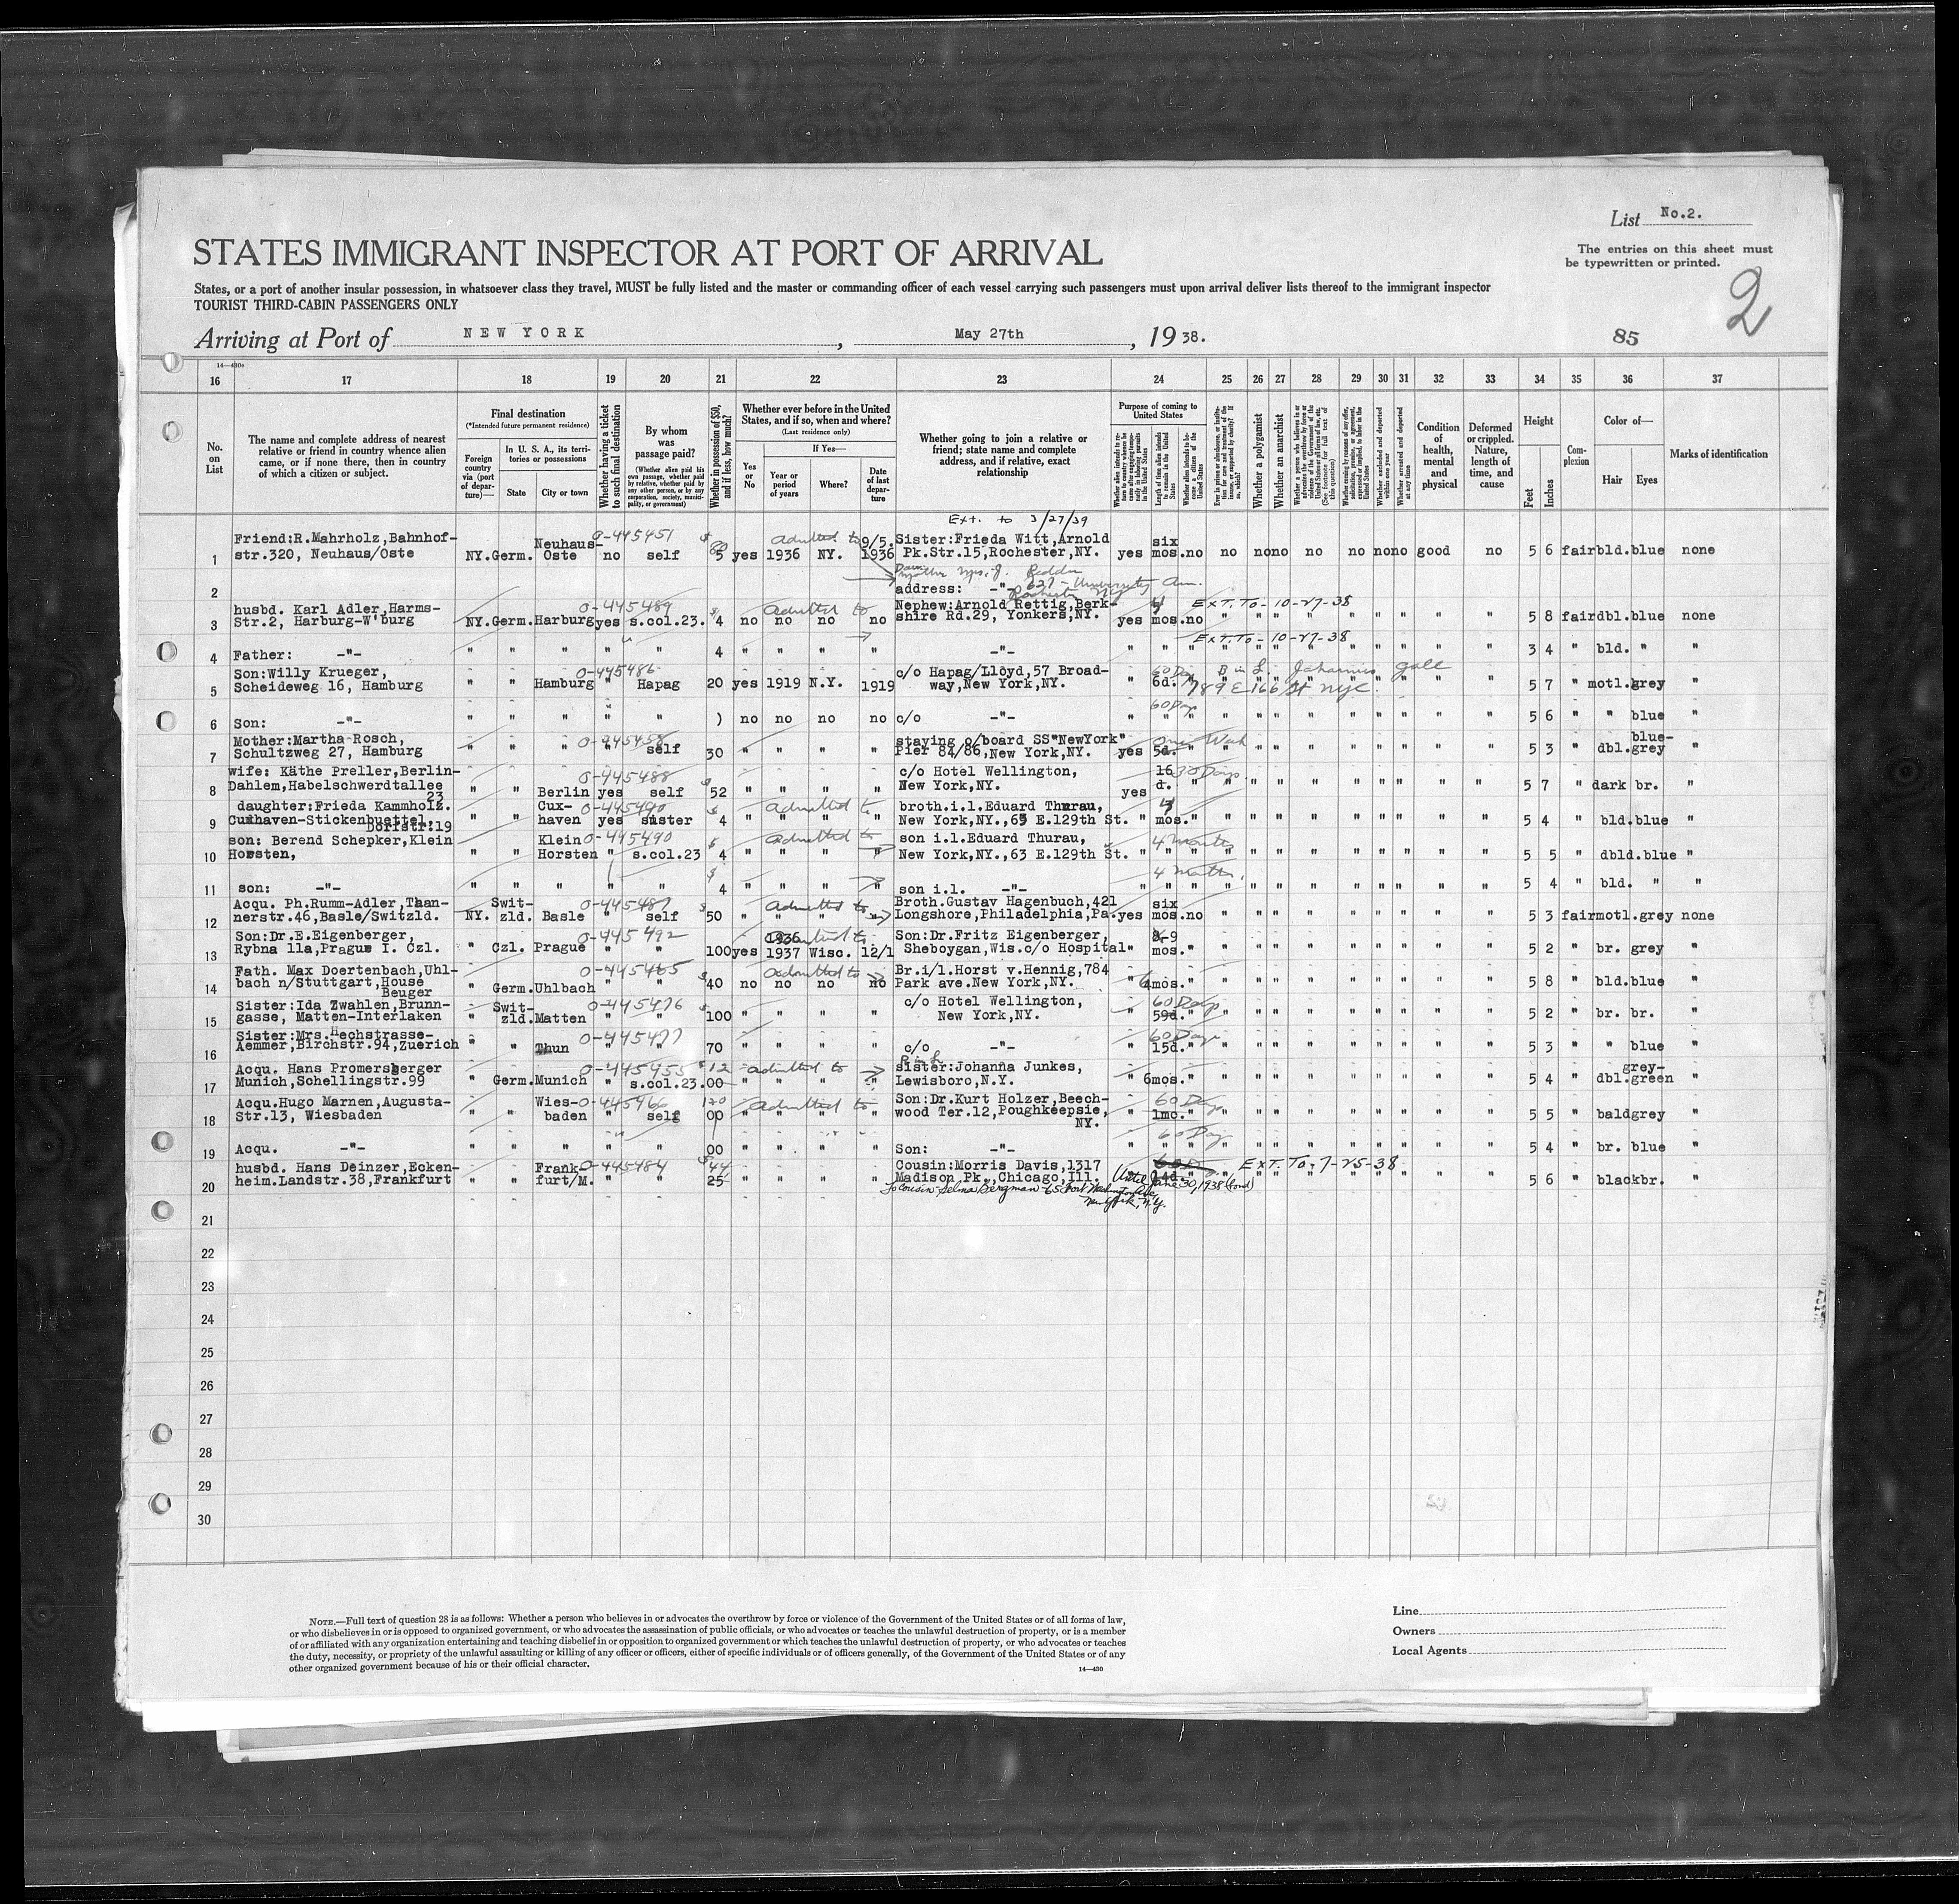 List No.2.
STATES IMMIGRANT INSPECTOR AT PORT OF ARRIVAL
The entries on this sheet must
be typewritten or printed.
States, or a port of another insular possession, in whatsoever class they travel, MUST be fully listed and the master or commanding officer of each vessel carrying such passengers must upon arrival deliver lists thereof to the immigrant inspector
TOURIST THIRD-CABIN PASSENGERS ONLY
2
Arriving at Port of NEW YORK, May 27th, 1938.
85
14—430c
16 17 18 19 20 21 22 23 24 25 26 27 28 29 30 31 32 33 34 35 36 37
No. on List
The name and complete address of nearest relative or friend in country whence alien came, or if none there, then in country of which a citizen or subject.
Final destination
(*Intended future permanent residence)
Foreign country via (port of departure)—
In U. S. A., its territories or possessions
State
City or town
Whether having a ticket to such final destination
By whom was passage paid?
(Whether alien paid his own passage, whether paid by relative, whether paid by any other person, or by any corporation, society, municipality, or government)
Whether in possession of $50, and if less, how much?
Whether ever before in the United States, and if so, when and where?
(Last residence only)
Yes or No
If Yes—
Year or period of years
Where?
Date of last departure
Whether going to join a relative or friend; state name and complete address, and if relative, exact relationship
Purpose of coming to United States
Length of time alien intends to remain in the United States
Whether alien intends to become a citizen of the United States
Whether a polygamist
Whether an anarchist
Condition of health, mental and physical
Deformed or crippled. Nature, length of time, and cause
Height
Feet
Inches
Complexion
Color of—
Hair
Eyes
Marks of identification
Ext. to 3/27/39
1 Friend:R.Mahrholz,Bahnhof-str.320, Neuhaus/Oste NY. Germ. Neuhaus-Oste 0-445451 no self 5 yes 1936 NY. 9/5. 1936 admitted to Sister:Frieda Witt,Arnold Pk.Str.15,Rochester,NY. yes six mos. no no no no no no no no good no 5 6 fair bld. blue none
2 address: -"- 627 - University Ave. Rochester NY
3 husbd. Karl Adler,Harms-Str.2, Harburg-W'burg NY. Germ. Harburg 0-445489 yes s.col.23. 4 no no no no admitted to Nephew:Arnold Rettig,Berkshire Rd.29, Yonkers,NY. yes mos. no Ext. To - 10-27-38 " " " " " " " " " 5 8 fair dbl. blue none
4 Father: -"- " " " " " 4 " " " " -"- " " " Ext. To - 10-27-38 " " " " " " " " " 3 4 " bld. " "
5 Son:Willy Krueger, Scheideweg 16, Hamburg " " Hamburg 0-445486 " Hapag 20 yes 1919 N.Y. 1919 c/o Hapag/Lloyd,57 Broadway,New York,NY. " 60 Days 6d. " B in L. Johannis Gall 789 E 166 St NYC 5 7 " motl. grey "
6 Son: -"- " " " " " ) no no no no c/o -"- " 60 Days " " " " " " " " " " " 5 6 " " blue "
7 Mother:Martha Rosch, Schultzweg 27, Hamburg " " " 0-445458 " self 30 " " " " staying o/board SS"NewYork" Pier 84/86,New York,NY. yes one Week 5d. " " " " " " " " " " 5 3 " dbl. blue-grey "
8 wife: Käthe Preller,Berlin-Dahlem,Habelschwerdtallee 23 " " Berlin 0-445488 yes self 52 " " " " c/o Hotel Wellington, New York,NY. yes 16 d. 30 Days " " " " " " " " " " 5 7 " dark br. "
9 daughter:Frieda Kammholz. Cuxhaven-Stickenbuettel, Dorfstr.19 " " Cuxhaven 0-445490 yes sister 4 " " " " admitted to broth.i.l.Eduard Thurau, New York,NY.,63 E.129th St. " mos. " " " " " " " " " " 5 4 " bld. blue "
10 son: Berend Schepker,Klein Horsten, " " Klein Horsten 0-445490 " s.col.23 4 " " " " admitted to son i.l.Eduard Thurau, New York,NY.,63 E.129th St. " 4 months " " " " " " " " " " 5 5 " dbld. blue "
11 son: -"- " " " " " 4 " " " " son i.l. -"- " 4 months " " " " " " " " " " 5 4 " bld. " "
12 Acqu. Ph.Rumm-Adler,Than-nerstr.46,Basle/Switzld. NY. Switzld. Basle 0-445487 " self 50 " " " " admitted to Broth.Gustav Hagenbuch,421 Longshore,Philadelphia,Pa. yes six mos. no " " " " " " " " " 5 3 fair motl. grey none
13 Son:Dr.E.Eigenberger, Rybna 11a,Prague I. Czl. " Czl. Prague 0-445492 " " 100 yes 1936 1937 Wisc. 12/1 admitted to Son:Dr.Fritz Eigenberger, Sheboygan,Wis.c/o Hospital " 8-9 mos. " " " " " " " " " " 5 2 " br. grey "
14 Fath. Max Doertenbach,Uhl-bach n/Stuttgart,House Beuger " Germ. Uhlbach 0-445465 " " 40 no no no no admitted to Br.i/l.Horst v.Hennig,784 Park ave.New York,NY. " 4mos. " " " " " " " " " " 5 8 " bld. blue "
15 Sister:Ida Zwahlen,Brunn-gasse, Matten-Interlaken " Switzld. Matten 0-445476 " " 100 " " " " c/o Hotel Wellington, New York,NY. " 60 Days 59d. " " " " " " " " " " 5 2 " br. br. "
16 Sister:Mrs.Hechstrasse-Aemmer,Birchstr.94,Zuerich " " Thun 0-445477 " " 70 " " " " c/o -"- " 60 Days 15d. " " " " " " " " " " 5 3 " " blue "
17 Acqu. Hans Promersberger Munich,Schellingstr.99 " Germ. Munich 0-445455 " s.col.23. 12 00 " " " " admitted to sister:Johanna Junkes, Lewisboro,N.Y. " 6mos. " " " " " " " " " " 5 4 " dbl. grey-green "
18 Acqu.Hugo Marnen,Augusta-Str.13, Wiesbaden " " Wiesbaden 0-445466 " self 120 00 " " " " admitted to Son:Dr.Kurt Holzer,Beechwood Ter.12,Poughkeepsie, NY. " 60 Days 1mo. " " " " " " " " " " 5 5 " bald grey "
19 Acqu. -"- " " " " " 00 " " " " Son: -"- " 60 Days " " " " " " " " " " " 5 4 " br. blue "
20 husbd. Hans Deinzer,Ecken-heim.Landstr.38,Frankfurt " " Frankfurt/M. 0-445484 " " 44 25 " " " " Cousin:Morris Davis,1317 Madison Pk.,Chicago,Ill. 14d. Ext. To. 7-25-38 " " " " " " " " " 5 6 " black br. "
To cousin Selma Bergman - 65 Fort Washington Ave, New York, N.Y. Until June 30, 1938 (bond)
21
22
23
24
25
26
27
28
29
30
NOTE.—Full text of question 28 is as follows: Whether a person who believes in or advocates the overthrow by force or violence of the Government of the United States or of all forms of law,
or who disbelieves in or is opposed to organized government, or who advocates the assassination of public officials, or who advocates or teaches the unlawful destruction of property, or is a member
of or affiliated with any organization entertaining and teaching disbelief in or opposition to organized government or which teaches the unlawful destruction of property, or who advocates or teaches
the duty, necessity, or propriety of the unlawful assaulting or killing of any officer or officers, either of specific individuals or of officers generally, of the Government of the United States or of any
other organized government because of his or their official character.
14—430
Line
Owners
Local Agents